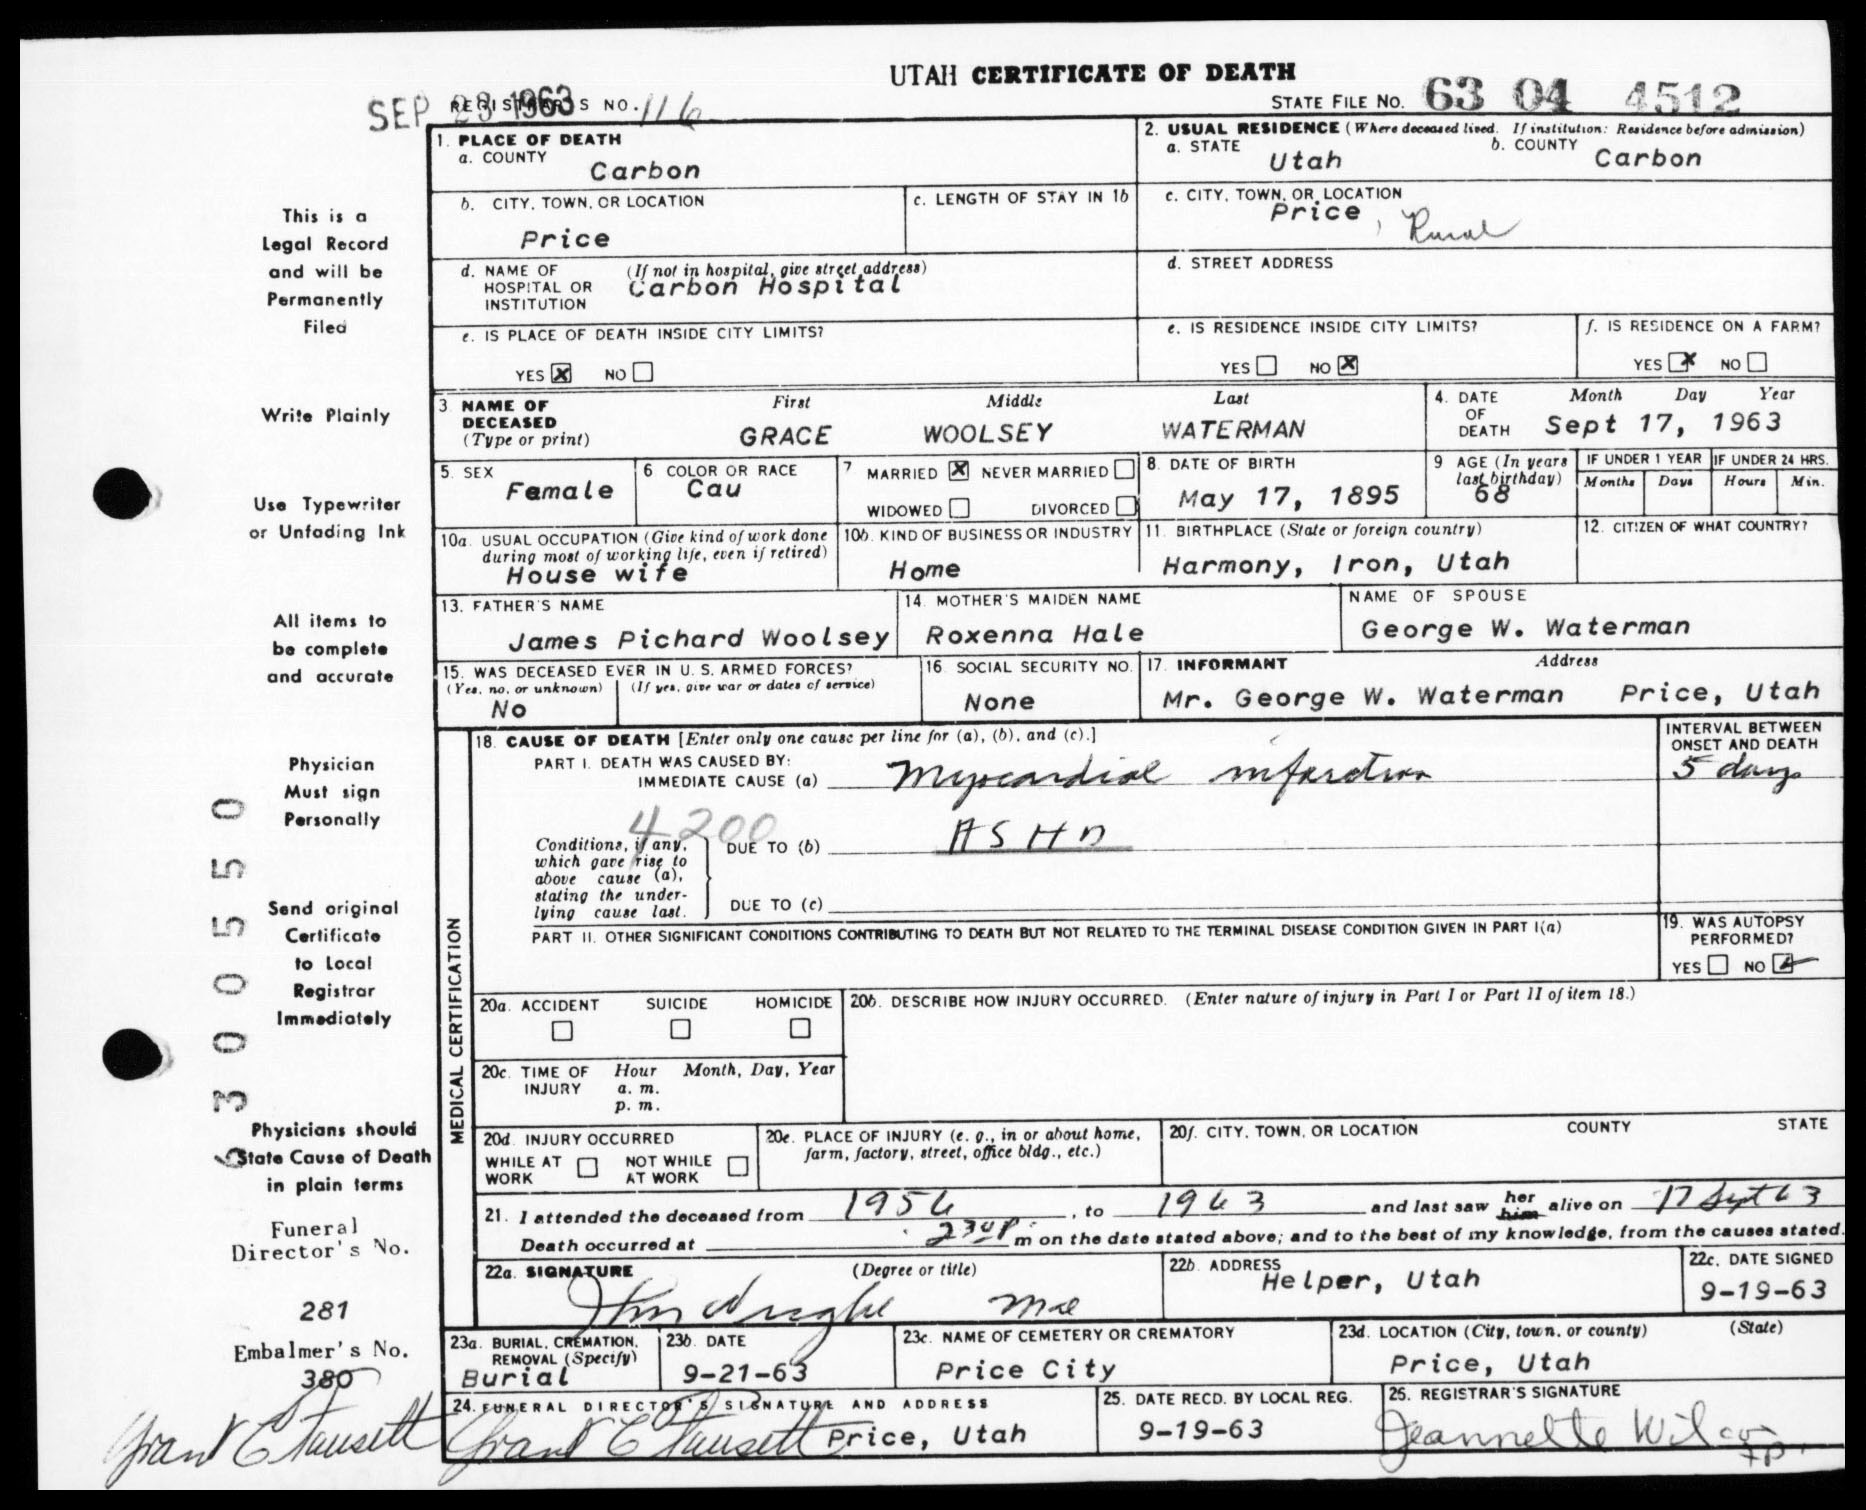 UTAH CERTIFICATE OF DEATH
SEP 23 1963 REGISTRAR'S NO. 116
STATE FILE NO. 63 04 4512
1. PLACE OF DEATH
a. COUNTY
Carbon
2. USUAL RESIDENCE (Where deceased lived. If institution: Residence before admission)
a. STATE Utah b. COUNTY Carbon
b. CITY, TOWN, OR LOCATION
Price
c. LENGTH OF STAY IN 1b
c. CITY, TOWN, OR LOCATION
Price, Rural
d. NAME OF HOSPITAL OR INSTITUTION (If not in hospital, give street address)
Carbon Hospital
d. STREET ADDRESS
e. IS PLACE OF DEATH INSIDE CITY LIMITS?
YES X NO
e. IS RESIDENCE INSIDE CITY LIMITS?
YES NO X
f. IS RESIDENCE ON A FARM?
YES X NO
3. NAME OF DECEASED (Type or print)
First Middle Last
GRACE WOOLSEY WATERMAN
4. DATE OF DEATH Month Day Year
Sept 17, 1963
5. SEX
Female
6 COLOR OR RACE
Cau
7 MARRIED X NEVER MARRIED
WIDOWED DIVORCED
8. DATE OF BIRTH
May 17, 1895
9 AGE (In years last birthday)
68
IF UNDER 1 YEAR
Months Days
IF UNDER 24 HRS.
Hours Min.
10a. USUAL OCCUPATION (Give kind of work done during most of working life, even if retired)
House wife
10b. KIND OF BUSINESS OR INDUSTRY
Home
11. BIRTHPLACE (State or foreign country)
Harmony, Iron, Utah
12. CITIZEN OF WHAT COUNTRY?
13. FATHER'S NAME
James Pichard Woolsey
14. MOTHER'S MAIDEN NAME
Roxenna Hale
NAME OF SPOUSE
George W. Waterman
15. WAS DECEASED EVER IN U. S. ARMED FORCES?
(Yes, no, or unknown) (If yes, give war or dates of service)
No
16. SOCIAL SECURITY NO.
None
17. INFORMANT Address
Mr. George W. Waterman Price, Utah
MEDICAL CERTIFICATION
18. CAUSE OF DEATH [Enter only one cause per line for (a), (b), and (c).]
PART I. DEATH WAS CAUSED BY:
IMMEDIATE CAUSE (a) Myocardial infarction
INTERVAL BETWEEN ONSET AND DEATH
5 days
4200
Conditions, if any,
which gave rise to
above cause (a),
stating the under-
lying cause last.
DUE TO (b) ASHD
DUE TO (c)
PART II. OTHER SIGNIFICANT CONDITIONS CONTRIBUTING TO DEATH BUT NOT RELATED TO THE TERMINAL DISEASE CONDITION GIVEN IN PART I(a)
19. WAS AUTOPSY PERFORMED?
YES NO
20a. ACCIDENT SUICIDE HOMICIDE
20b. DESCRIBE HOW INJURY OCCURRED. (Enter nature of injury in Part I or Part II of item 18.)
20c. TIME OF INJURY Hour Month, Day, Year
a. m.
p. m.
20d. INJURY OCCURRED
WHILE AT WORK NOT WHILE AT WORK
20e. PLACE OF INJURY (e. g., in or about home, farm, factory, street, office bldg., etc.)
20f. CITY, TOWN, OR LOCATION COUNTY STATE
21. I attended the deceased from 1956, to 1963 and last saw her him alive on 17 Sept 63
Death occurred at 230 P m on the date stated above; and to the best of my knowledge, from the causes stated.
22a. SIGNATURE (Degree or title)
22b. ADDRESS
Helper, Utah
22c. DATE SIGNED
9-19-63
23a. BURIAL, CREMATION, REMOVAL (Specify)
Burial
23b. DATE
9-21-63
23c. NAME OF CEMETERY OR CREMATORY
Price City
23d. LOCATION (City, town, or county) (State)
Price, Utah
24. FUNERAL DIRECTOR'S SIGNATURE AND ADDRESS
Price, Utah
25. DATE RECD. BY LOCAL REG.
9-19-63
26. REGISTRAR'S SIGNATURE
Jeannette
This is a
Legal Record
and will be
Permanently
Filed
Write Plainly
Use Typewriter
or Unfading Ink
All items to
be complete
and accurate
Physician
Must sign
Personally
Send original
Certificate
to Local
Registrar
Immediately
Physicians should
State Cause of Death
in plain terms
Funeral
Director's No.
281
Embalmer's No.
380